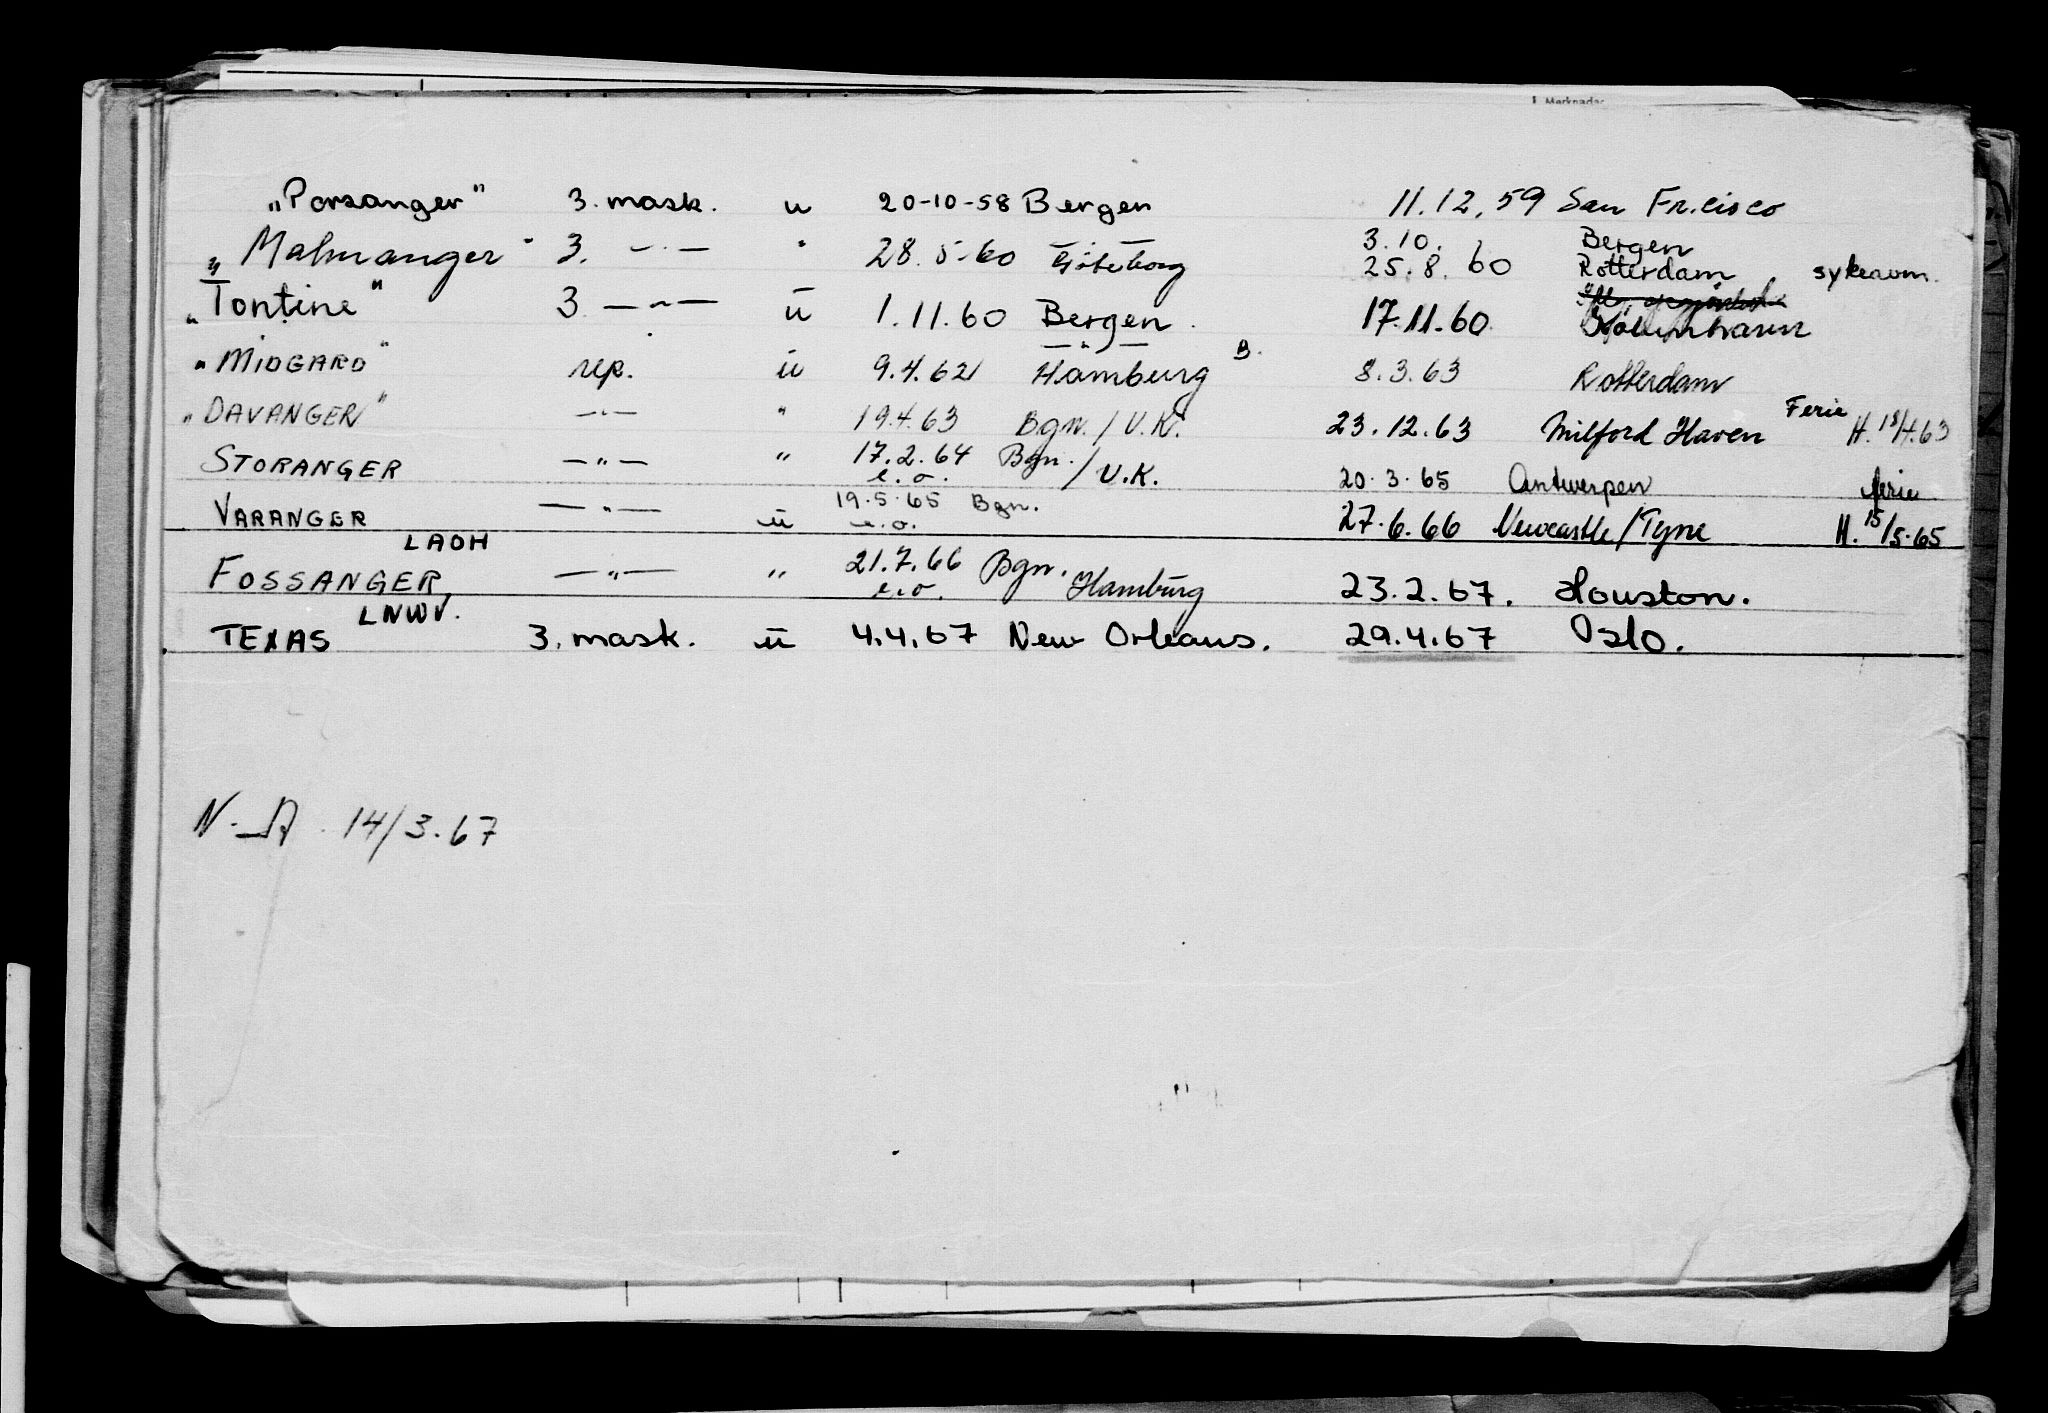 Merknader
"Porsanger" 3. mask. u 20-10-58 Bergen 11.12.59 San Fr.cisco
"Malmanger" 3. — " — " 28.5.60 Göteborg 3.10. Bergen
25.8.60 Rotterdam, sykerom.
"Tontine" 3 — " — u 1.11.60 Bergen 17.11.60
"MIDGARD" rep. u 9.4.62 Hamburg B. 8.3.63 Rotterdam
"DAVANGER" — " — " 19.4.63 Bgn./U.K. 23.12.63 Milford Haven Ferie H. 18/4.63
STORANGER — " — " 17.2.64 Bgn./U.K. 20.3.65 Antwerpen ferie
e.o.
VARANGER — " — u 19.5.65 Bgn. 27.6.66 Newcastle/Tyne H. 15/5.65
e.o.
LAOH
FOSSANGER — " — " 21.7.66 Bgn. Hamburg 23.2.67. Houston.
e.o.
LNWV.
TEXAS 3. mask. u 4.4.67 New Orleans. 29.4.67 Oslo.
N.A. 14/3.67